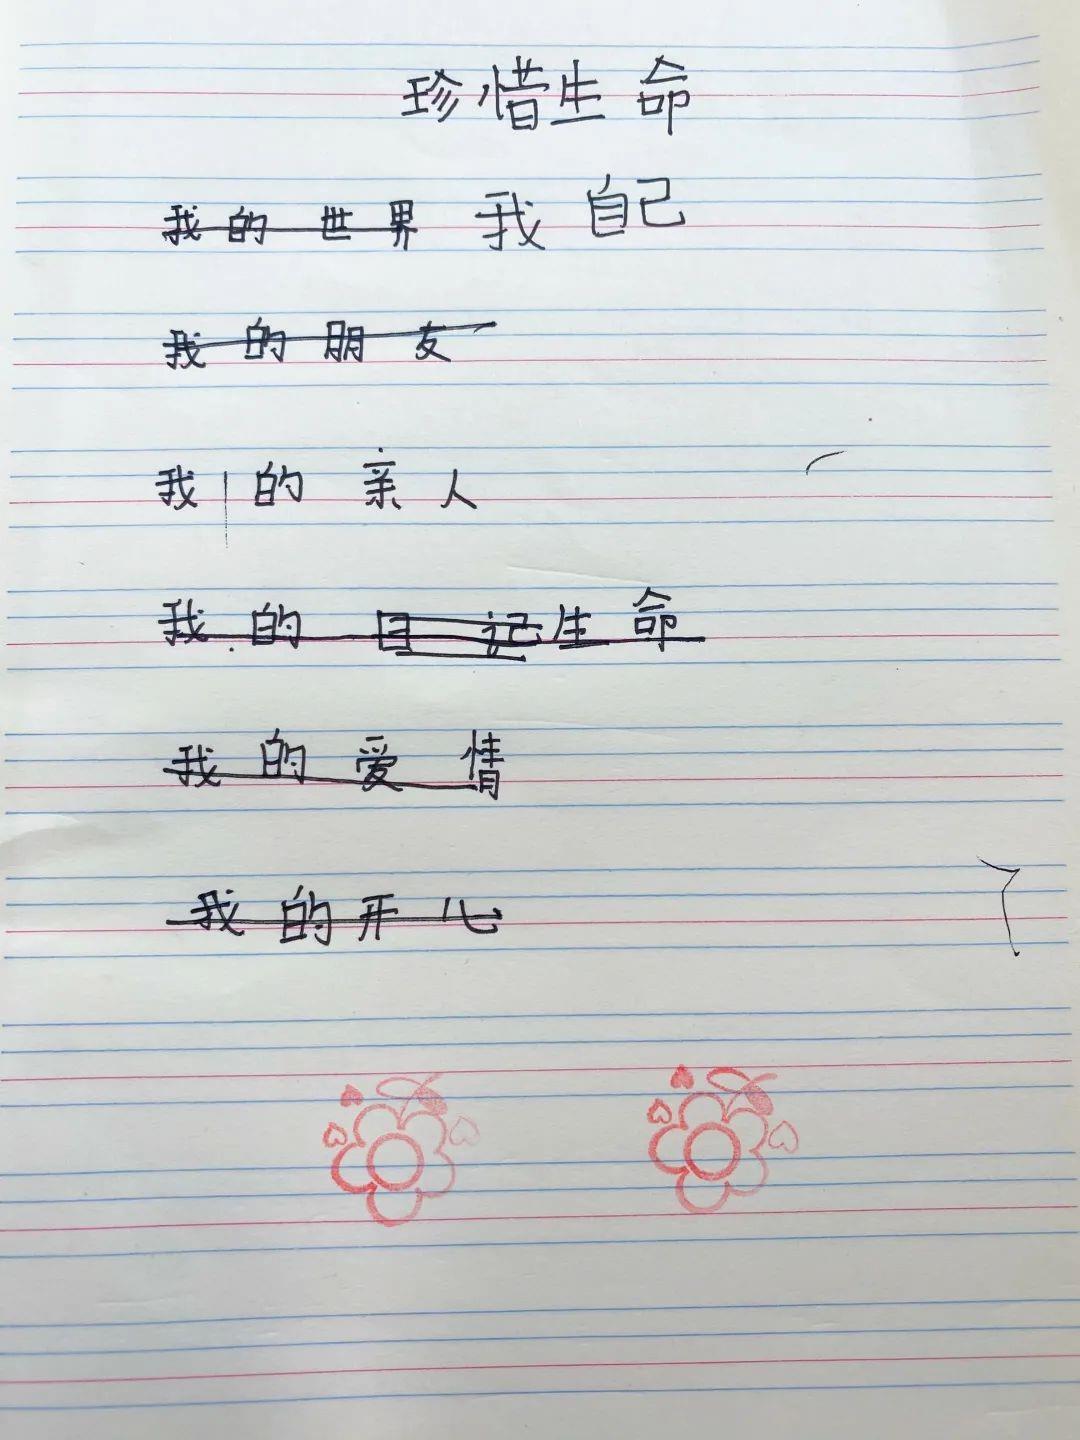 珍惜生命
我的世界 我自己
我的朋友
我的亲人
我的日记生命
我的爱情
我的开心